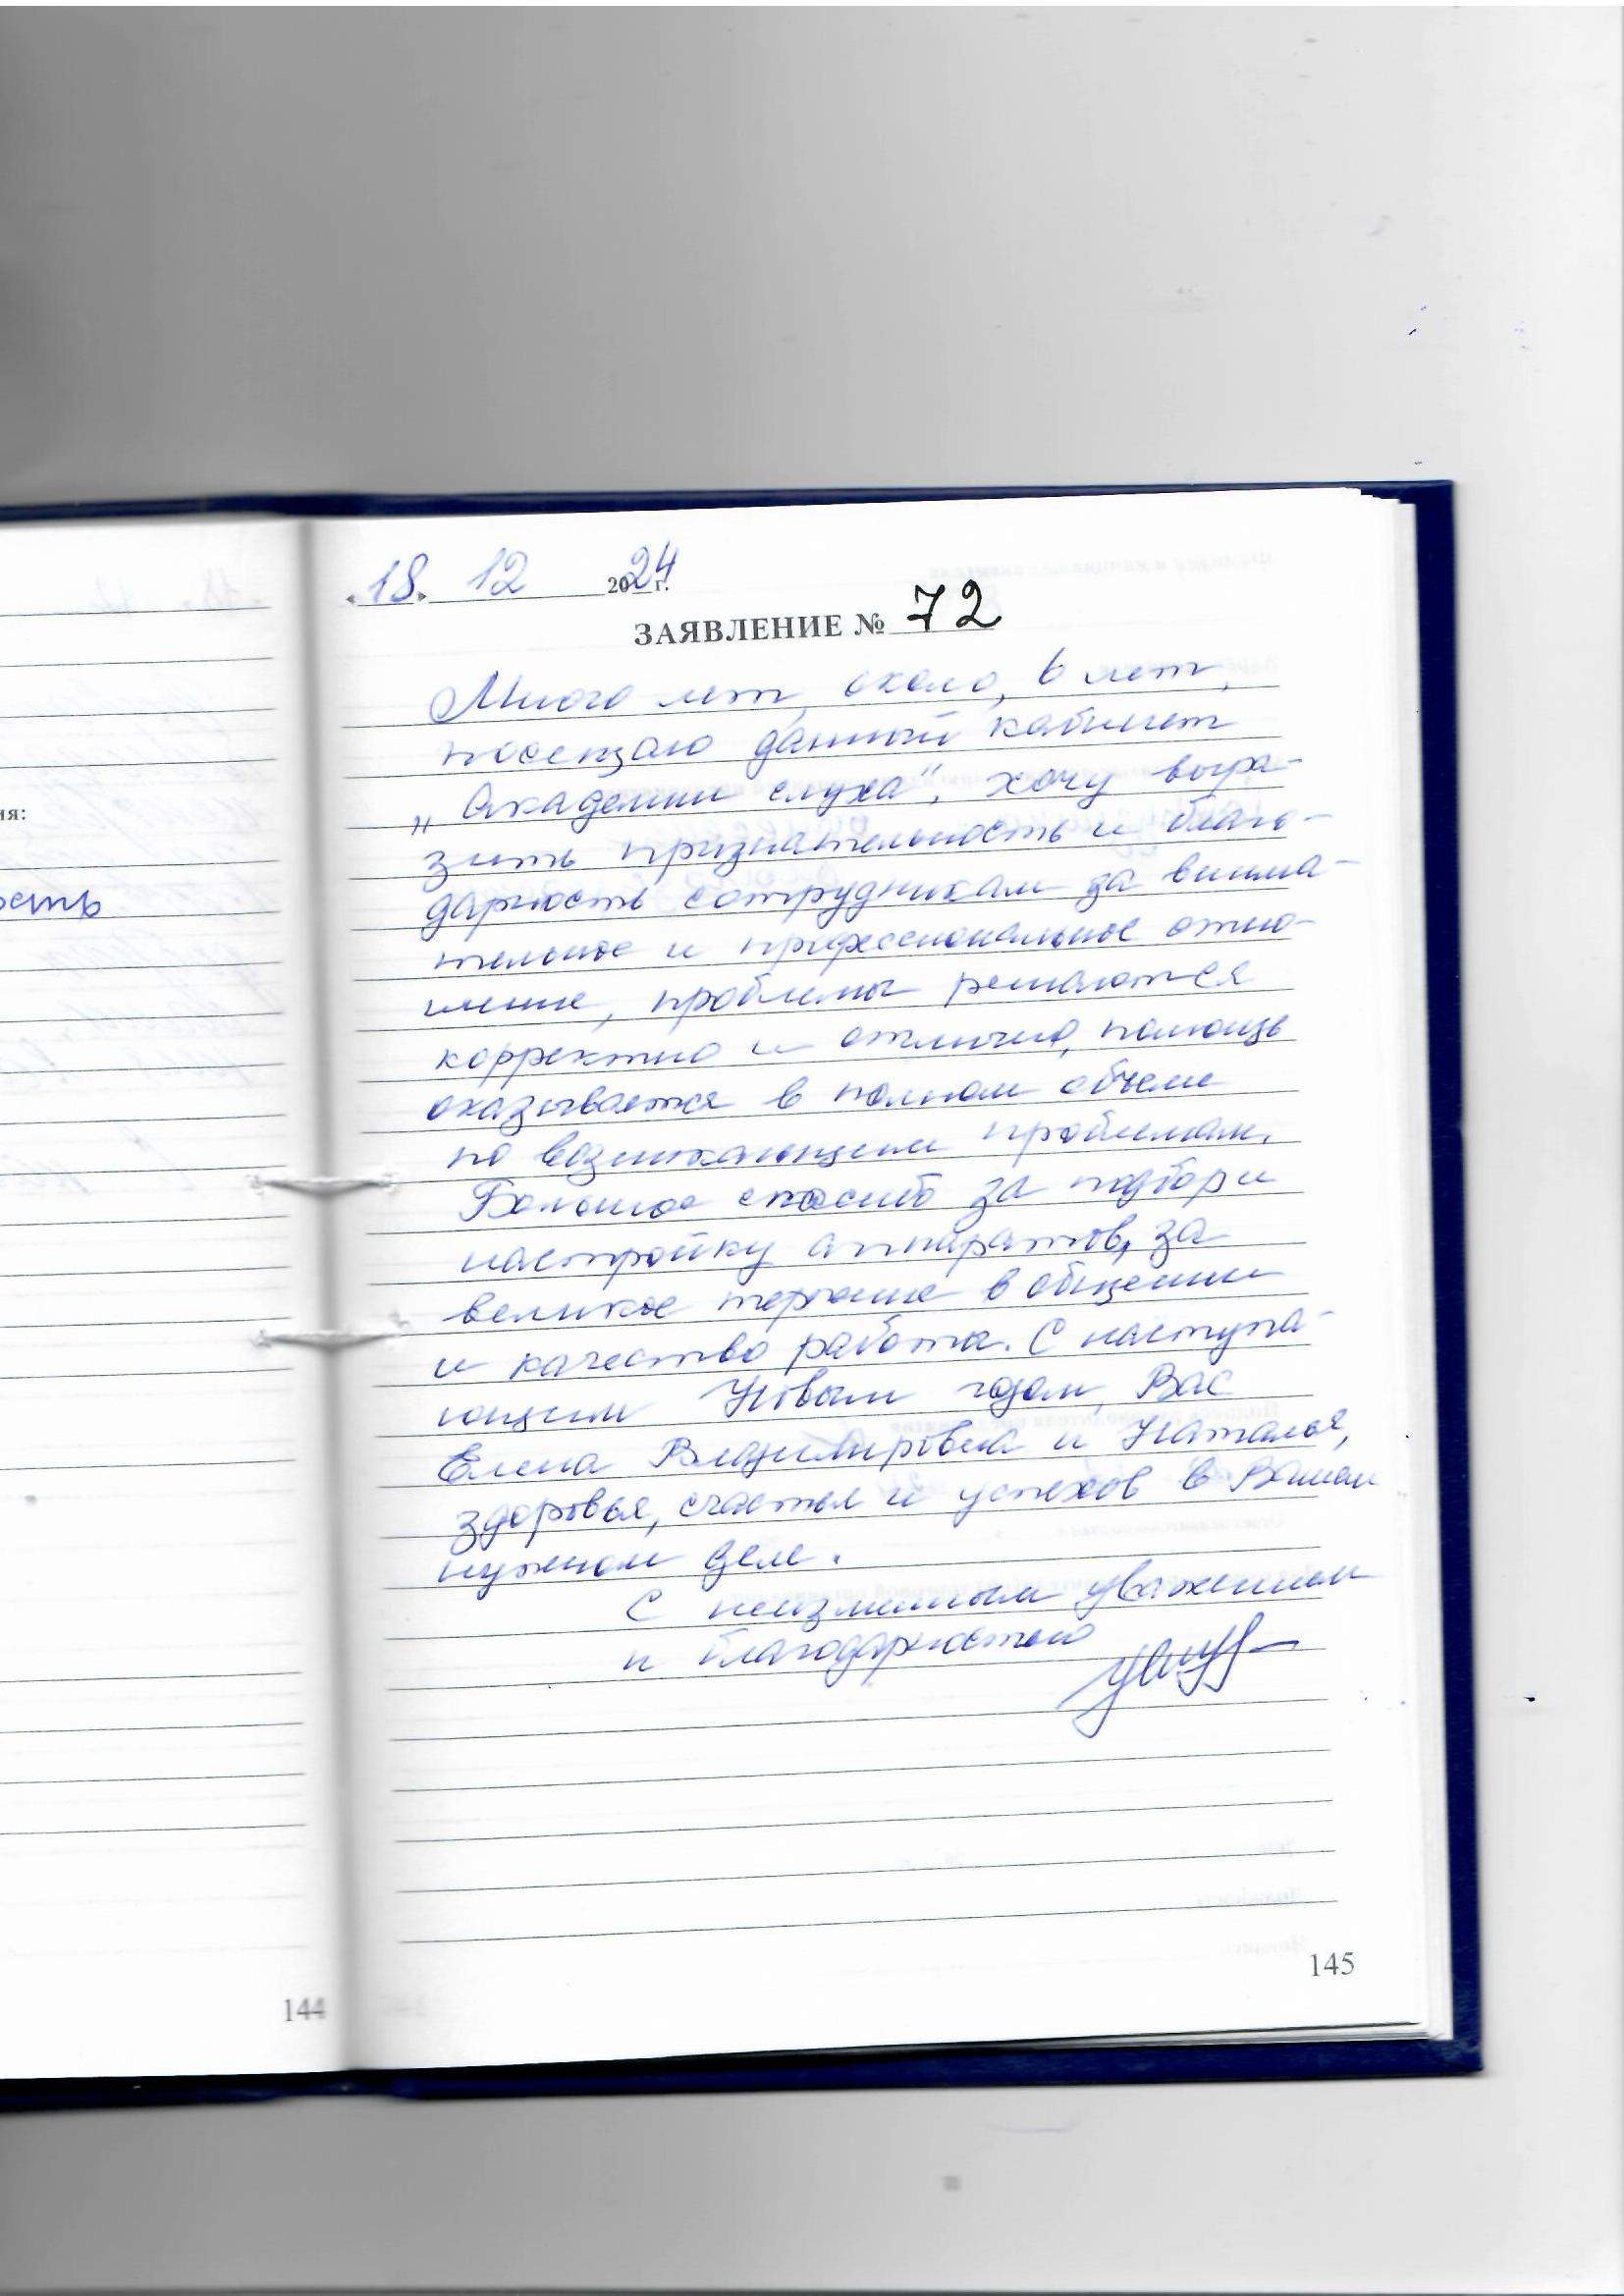 ия:
ость
144
«18» 12 2024 г.
ЗАЯВЛЕНИЕ № 72
Много лет, около, 6 лет,
посещаю данный кабинет
„Академии слуха", хочу выра-
зить признательность и благо-
дарность сотрудникам за внима-
тельное и профессиональное отно-
шение, проблемы решаются
корректно и отлично, помощь
оказывается в полном объеме
по возникающим проблемам.
Большое спасибо за подбор и
настройку аппаратов, за
великое терпение в общении
и качество работы. С наступа-
ющим Новым годом, Вас
Елена Владимировна и Наталья,
здоровья, счастья и успехов в Вашем
нужном деле.
С неизменным уважением
и благодарностью
145